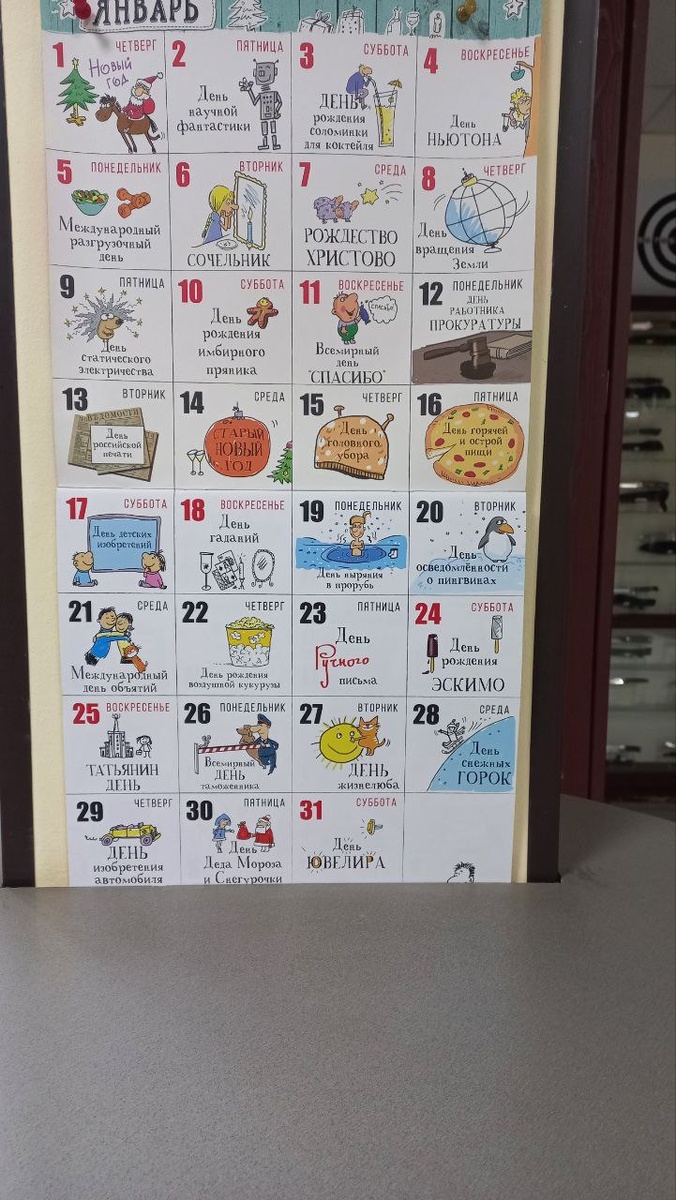 ЯНВАРЬ
1 ЧЕТВЕРГ
Новый
год
2 ПЯТНИЦА
День
научной
фантастики
3 СУББОТА
ДЕНЬ
рождения
соломинки
для коктейля
4 ВОСКРЕСЕНЬЕ
День
НЬЮТОНА
5 ПОНЕДЕЛЬНИК
Международный
разгрузочный
день
6 ВТОРНИК
СОЧЕЛЬНИК
7 СРЕДА
РОЖДЕСТВО
ХРИСТОВО
8 ЧЕТВЕРГ
День
вращения
Земли
9 ПЯТНИЦА
День
статического
электричества
10 СУББОТА
День
рождения
имбирного
пряника
11 ВОСКРЕСЕНЬЕ
СПАСИБО!
Всемирный
день
"СПАСИБО"
12 ПОНЕДЕЛЬНИК
ДЕНЬ
РАБОТНИКА
ПРОКУРАТУРЫ
13 ВТОРНИК
ВЕДОМОСТИ
День
российской
печати
14 СРЕДА
СТАРЫЙ
НОВЫЙ
ГОД
15 ЧЕТВЕРГ
День
головного
убора
16 ПЯТНИЦА
День горячей
и острой
пищи
17 СУББОТА
День детских
изобретений
18 ВОСКРЕСЕНЬЕ
День
гаданий
19 ПОНЕДЕЛЬНИК
День ныряния
в прорубь
20 ВТОРНИК
День
осведомлённости
о пингвинах
21 СРЕДА
Международный
день объятий
22 ЧЕТВЕРГ
День рождения
воздушной кукурузы
23 ПЯТНИЦА
День
Ручного
письма
24 СУББОТА
День
рождения
ЭСКИМО
25 ВОСКРЕСЕНЬЕ
ТАТЬЯНИН
ДЕНЬ
26 ПОНЕДЕЛЬНИК
Всемирный
ДЕНЬ
таможенника
27 ВТОРНИК
ДЕНЬ
жизнелюба
28 СРЕДА
День
снежных
ГОРОК
29 ЧЕТВЕРГ
ДЕНЬ
изобретения
автомобиля
30 ПЯТНИЦА
День
Деда Мороза
и Снегурочки
31 СУББОТА
День
ЮВЕЛИРА